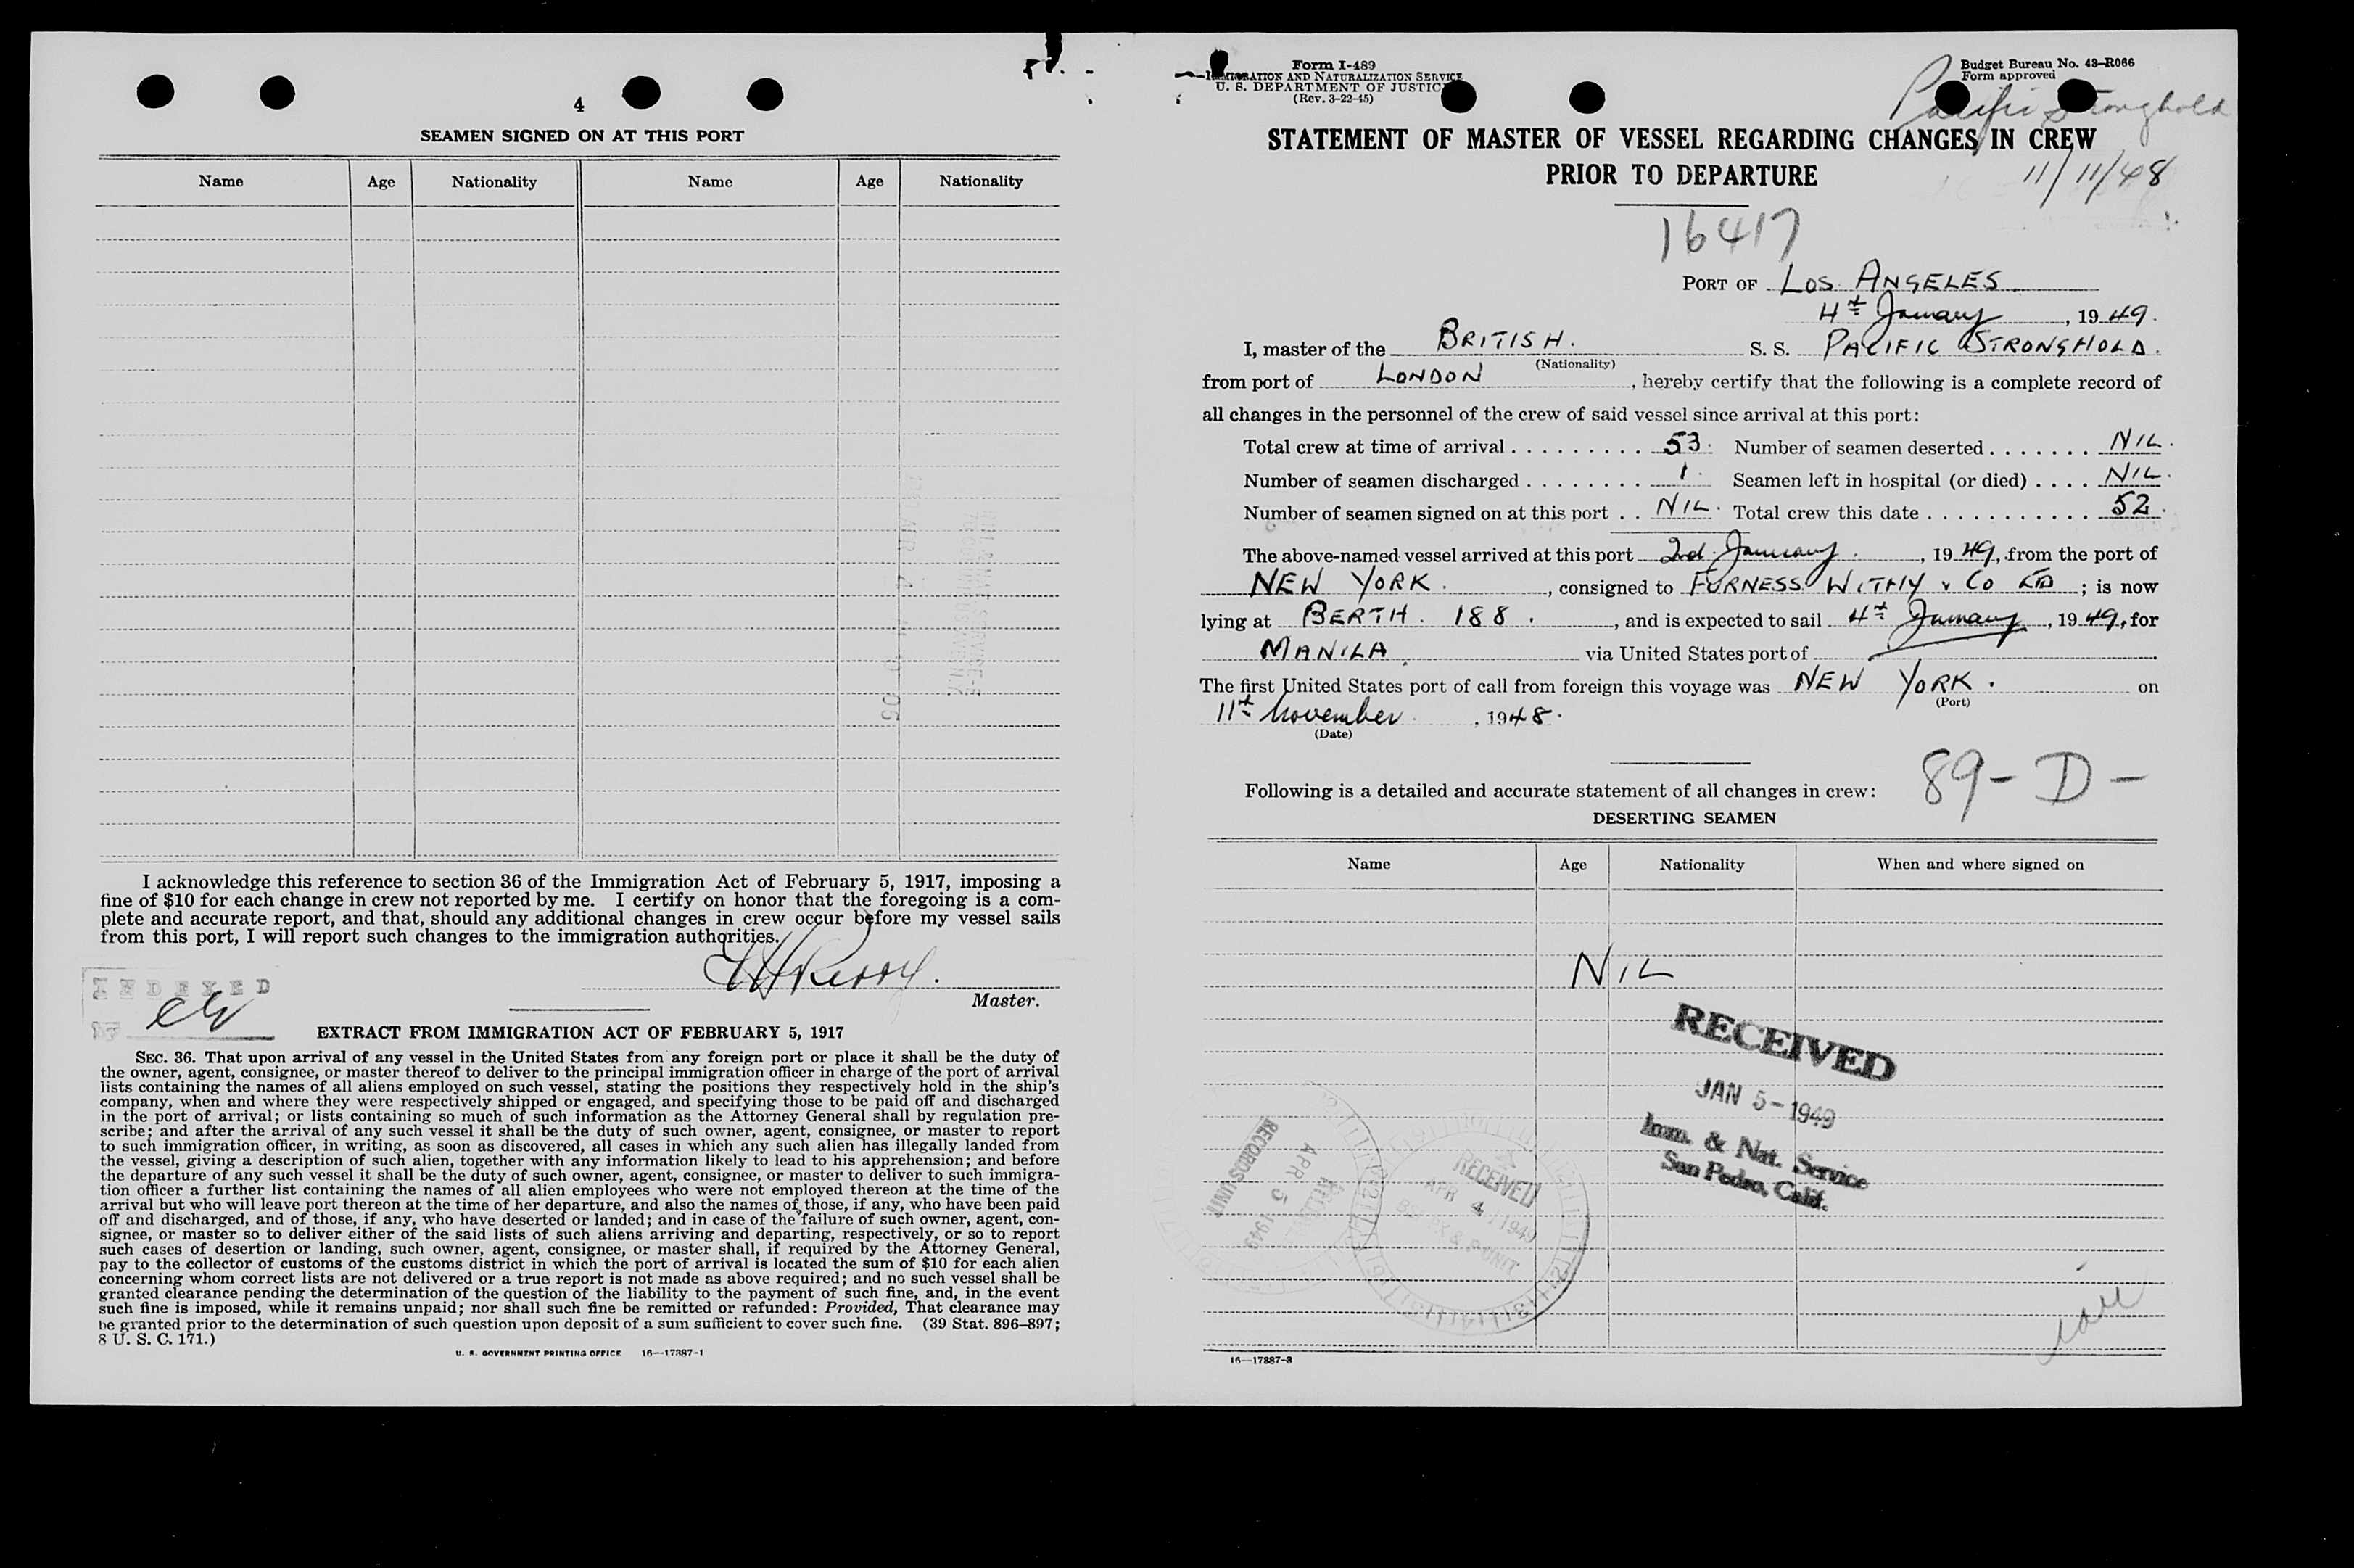 4
SEAMEN SIGNED ON AT THIS PORT
Name Age Nationality Name Age Nationality
I acknowledge this reference to section 36 of the Immigration Act of February 5, 1917, imposing a
fine of $10 for each change in crew not reported by me. I certify on honor that the foregoing is a com-
plete and accurate report, and that, should any additional changes in crew occur before my vessel sails
from this port, I will report such changes to the immigration authorities.
Master.
INDEXED
EXTRACT FROM IMMIGRATION ACT OF FEBRUARY 5, 1917
SEC. 36. That upon arrival of any vessel in the United States from any foreign port or place it shall be the duty of
the owner, agent, consignee, or master thereof to deliver to the principal immigration officer in charge of the port of arrival
lists containing the names of all aliens employed on such vessel, stating the positions they respectively hold in the ship's
company, when and where they were respectively shipped or engaged, and specifying those to be paid off and discharged
in the port of arrival; or lists containing so much of such information as the Attorney General shall by regulation pre-
scribe; and after the arrival of any such vessel it shall be the duty of such owner, agent, consignee, or master to report
to such immigration officer, in writing, as soon as discovered, all cases in which any such alien has illegally landed from
the vessel, giving a description of such alien, together with any information likely to lead to his apprehension; and before
the departure of any such vessel it shall be the duty of such owner, agent, consignee, or master to deliver to such immigra-
tion officer a further list containing the names of all alien employees who were not employed thereon at the time of the
arrival but who will leave port thereon at the time of her departure, and also the names of those, if any, who have been paid
off and discharged, and of those, if any, who have deserted or landed; and in case of the failure of such owner, agent, con-
signee, or master so to deliver either of the said lists of such aliens arriving and departing, respectively, or so to report
such cases of desertion or landing, such owner, agent, consignee, or master shall, if required by the Attorney General,
pay to the collector of customs of the customs district in which the port of arrival is located the sum of $10 for each alien
concerning whom correct lists are not delivered or a true report is not made as above required; and no such vessel shall be
granted clearance pending the determination of the question of the liability to the payment of such fine, and, in the event
such fine is imposed, while it remains unpaid; nor shall such fine be remitted or refunded: Provided, That clearance may
be granted prior to the determination of such question upon deposit of a sum sufficient to cover such fine. (39 Stat. 896–897;
8 U. S. C. 171.)
U. S. GOVERNMENT PRINTING OFFICE 16—17887-1
Form I-489
IMMIGRATION AND NATURALIZATION SERVICE
U. S. DEPARTMENT OF JUSTICE
(Rev. 3-22-45)
Budget Bureau No. 43–R066
Form approved
Pacific Stronghold
STATEMENT OF MASTER OF VESSEL REGARDING CHANGES IN CREW
PRIOR TO DEPARTURE
11/11/48
16417
PORT OF LOS ANGELES
4th January, 1949.
I, master of the BRITISH. S. S. PACIFIC STRONGHOLD.
(Nationality)
from port of LONDON, hereby certify that the following is a complete record of
all changes in the personnel of the crew of said vessel since arrival at this port:
Total crew at time of arrival . . . . . . . . . 53. Number of seamen deserted . . . . . . . NIL.
Number of seamen discharged . . . . . . . . 1. Seamen left in hospital (or died) . . . . NIL.
Number of seamen signed on at this port . . NIL. Total crew this date . . . . . . . . . . . . 52.
The above-named vessel arrived at this port 2d. January., 1949, from the port of
NEW YORK., consigned to FURNESS WITHY & CO LTD; is now
lying at BERTH. 188., and is expected to sail 4th January, 1949, for
MANILA. via United States port of
The first United States port of call from foreign this voyage was NEW YORK. on
(Port)
11th November., 1948.
(Date)
89-D-
Following is a detailed and accurate statement of all changes in crew:
DESERTING SEAMEN
Name Age Nationality When and where signed on
NIL
RECEIVED
JAN 5-1949
Imm. & Nat. Service
San Pedro, Calif.
RECORDS UNIT
APR 5 1949
RECEIVED
APR 4 1949
16—17887-3